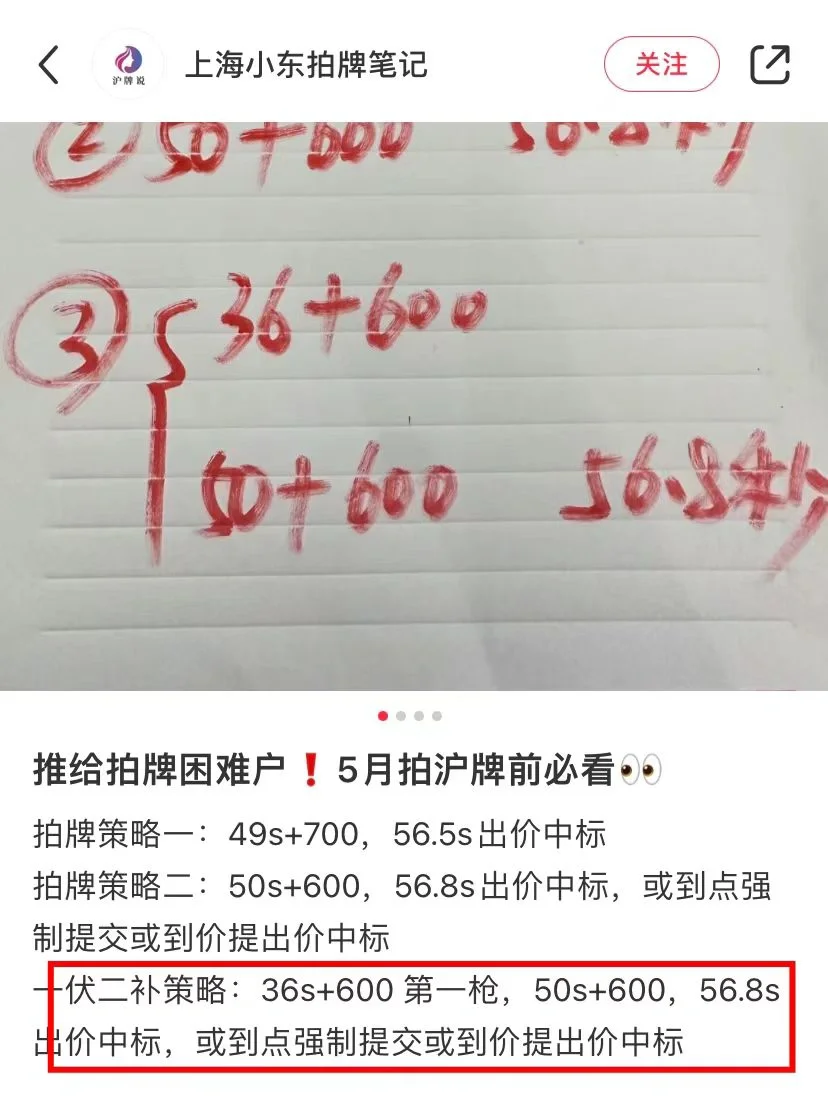 沪牌说
上海小东拍牌笔记
关注
② 50+600 56.8秒
③ 36+600
50+600 56.8秒
推给拍牌困难户❗5月拍沪牌前必看👀
拍牌策略一：49s+700，56.5s出价中标
拍牌策略二：50s+600，56.8s出价中标，或到点强
制提交或到价提出价中标
一伏二补策略：36s+600 第一枪，50s+600，56.8s
出价中标，或到点强制提交或到价提出价中标